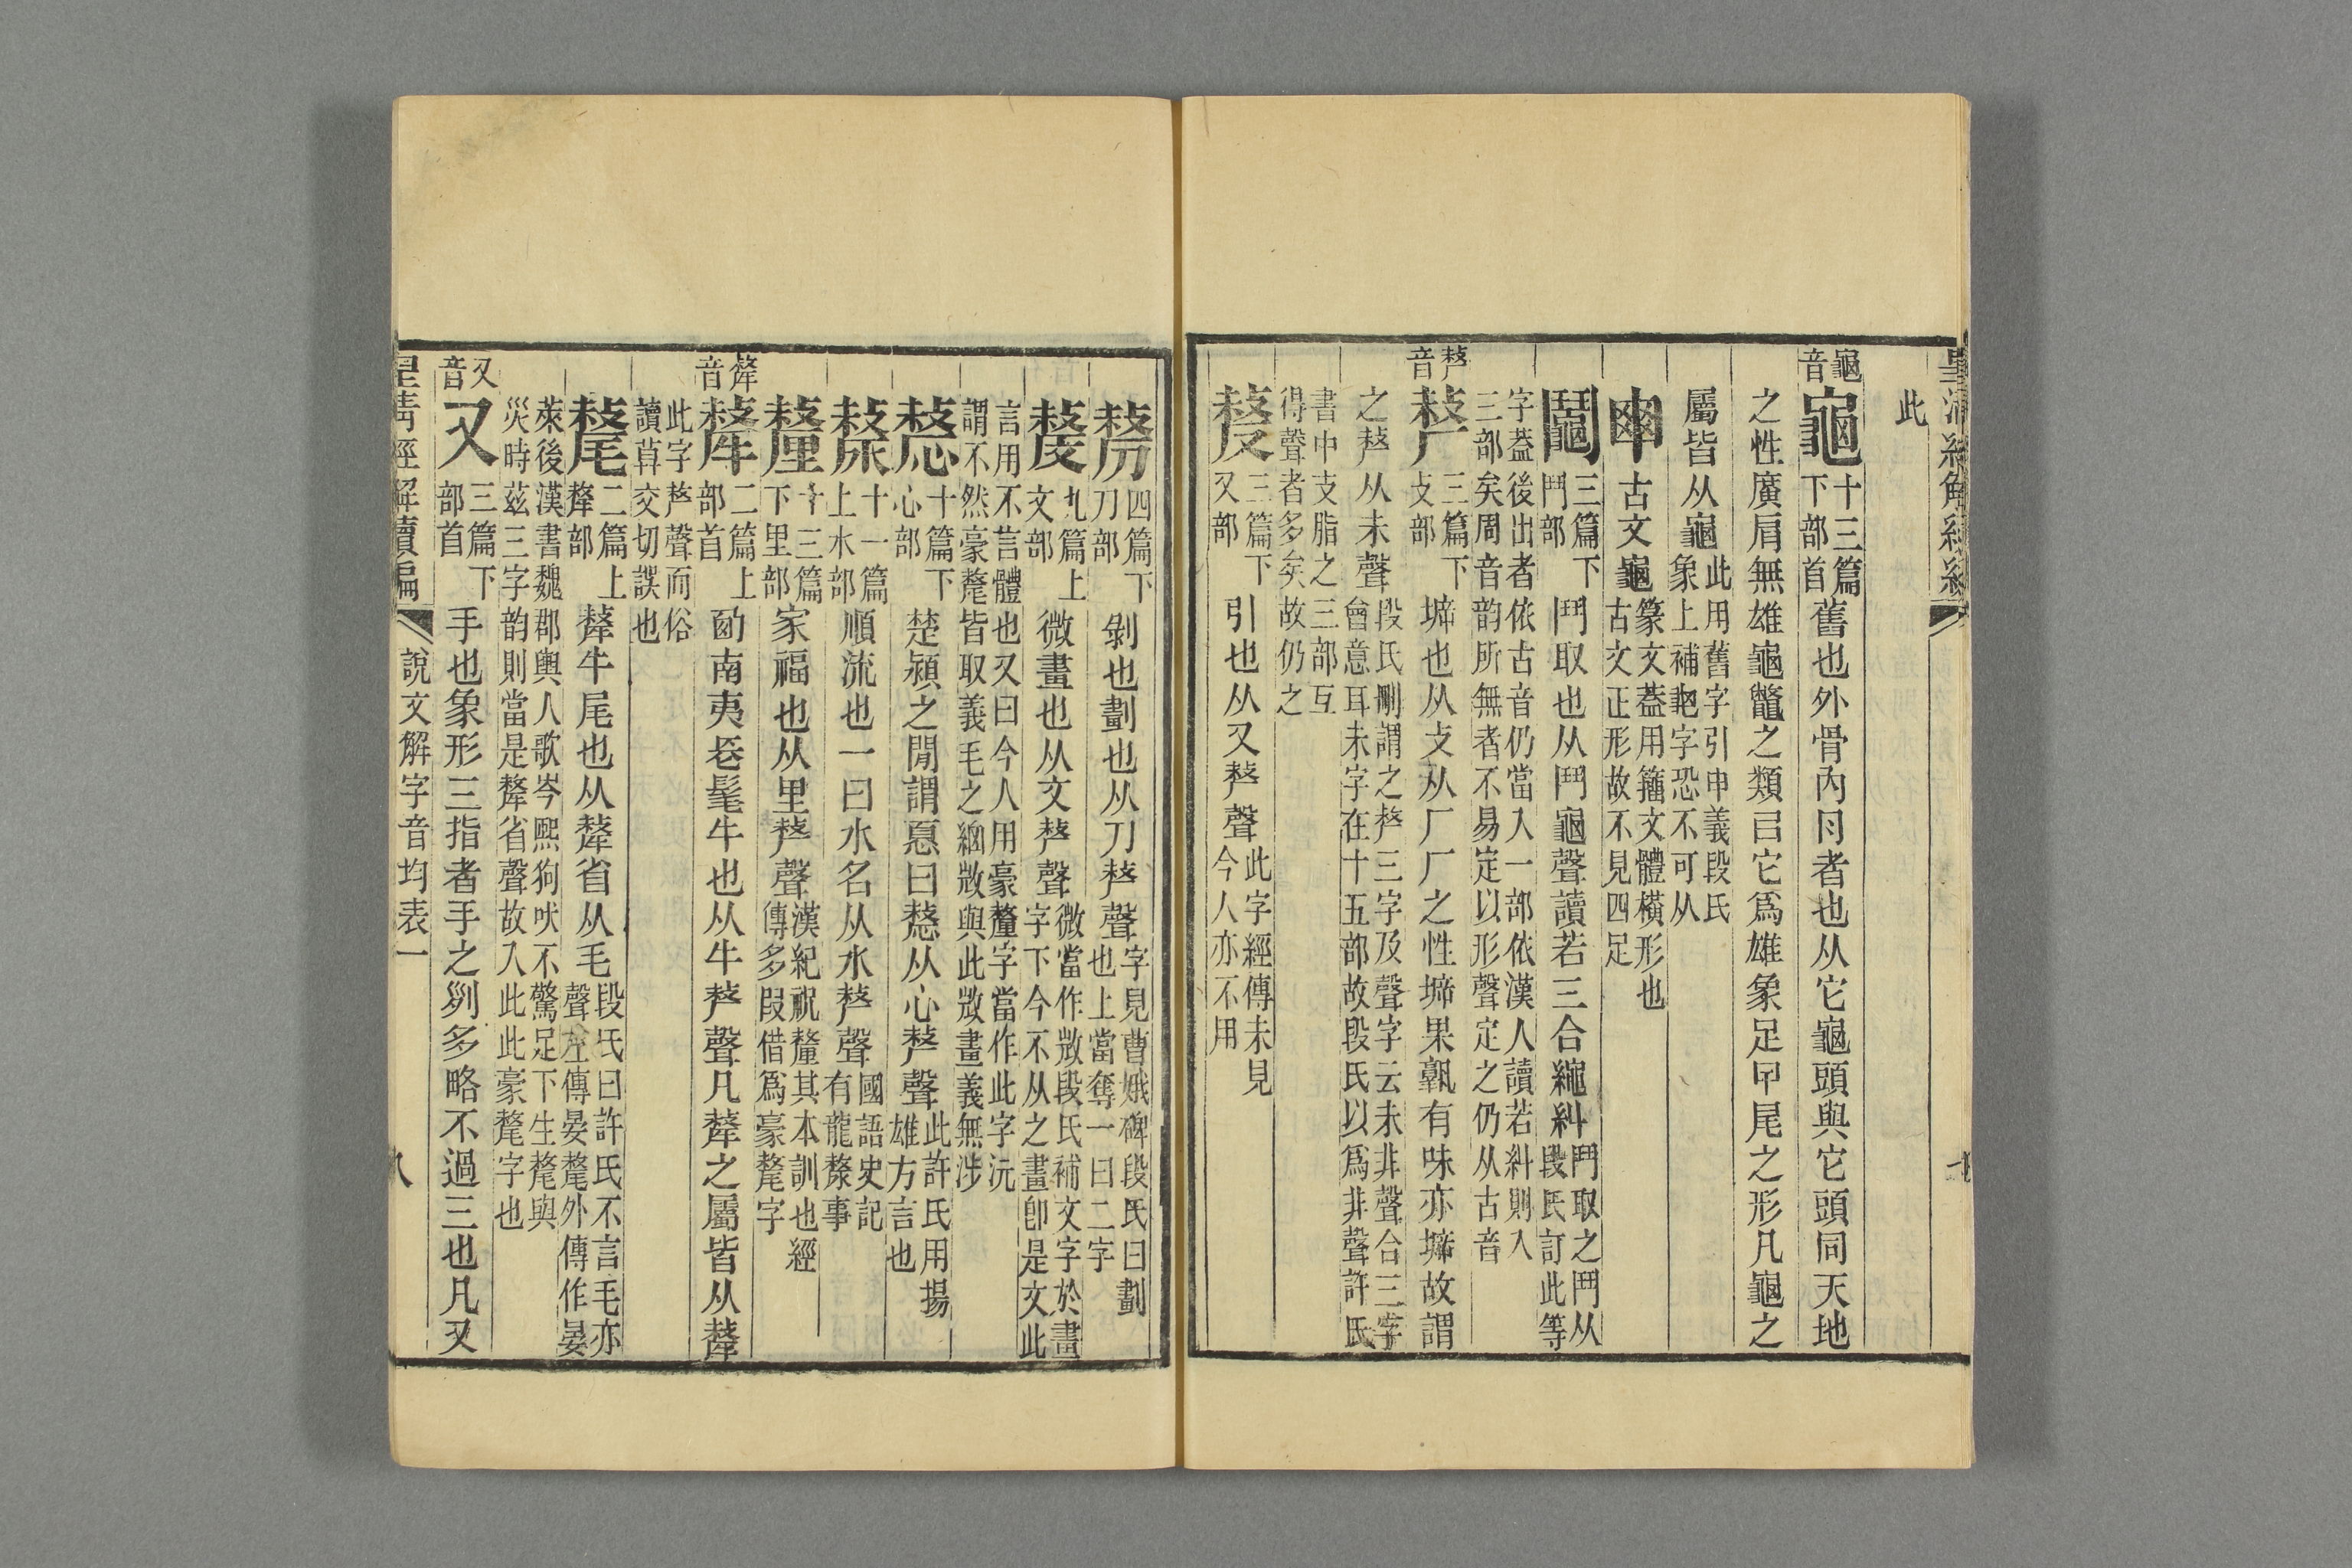 此
龜音 龜 十三篇下部首 舊也外骨內肉者也从它龜頭與它頭同天地
之性廣肩無雄龜鼈之類㠯它爲雄象足甲尾之形凡龜之
屬皆从龜 此用舊字引申義段氏象上補龜字恐不可从
古文龜 篆文蓋用籒文體橫形也古文正形故不見四足
鬮 三篇下鬥部 鬥取也从鬥龜聲讀若三合繩糾 鬥取之鬥从段氏訂此等
字蓋後出者依古音仍當入一部依漢人讀若糾則入三部矣周音韵所無者不易定以形聲定之仍从古音
𠩺音 𠩺 三篇下攴部 㙷也从攴从厂厂之性㙷果孰有味亦㙷故謂
之𠩺从未聲 段氏刪謂之𠩺三字及聲字云未非聲合三字會意耳未字在十五部故段氏以爲非聲許氏
書中支脂之三部互得聲者多矣故仍之
𠭰 三篇下又部 引也从又𠩺聲 此字經傳未見今人亦不用
剺 四篇下刀部 剝也劃也从刀𠩺聲 字見曹娥碑段氏曰劃也上當奪一曰二字
嫠 九篇上文部 微畫也从文𠩺聲 微當作㪫段氏補文字於畫字下今不从之畫卽是文此
言用不言體也又曰今人用豪釐字當作此字沅謂不然豪氂皆取義毛之緬㪫與此㪫畫義無涉
𢤂 十篇下心部 楚潁之閒謂憂曰𢤂从心𠩺聲 此許氏用揚雄方言也
漦 十一篇上水部 順流也一曰水名从水𠩺聲 國語史記有龍漦事
釐 十三篇下里部 家福也从里𠩺聲 漢紀祝釐其本訓也經傳多叚借爲豪氂字
犛音 犛 二篇上部首 西南夷長髦牛也从牛𠩺聲凡犛之屬皆从犛
此字𠩺聲而俗讀莫交切誤也
氂 二篇上犛部 犛牛尾也从犛省从毛 段氏曰許氏不言毛亦聲左傳晏氂外傳作晏
萊後漢書魏郡輿人歌岑熙狗吠不驚足下生氂與災時茲三字韵則當是犛省聲故入此此豪氂字也
又音 又 三篇下部首 手也象形三指者手之𠛱多略不過三也凡又
皇清經解續編 說文解字音均表一 九